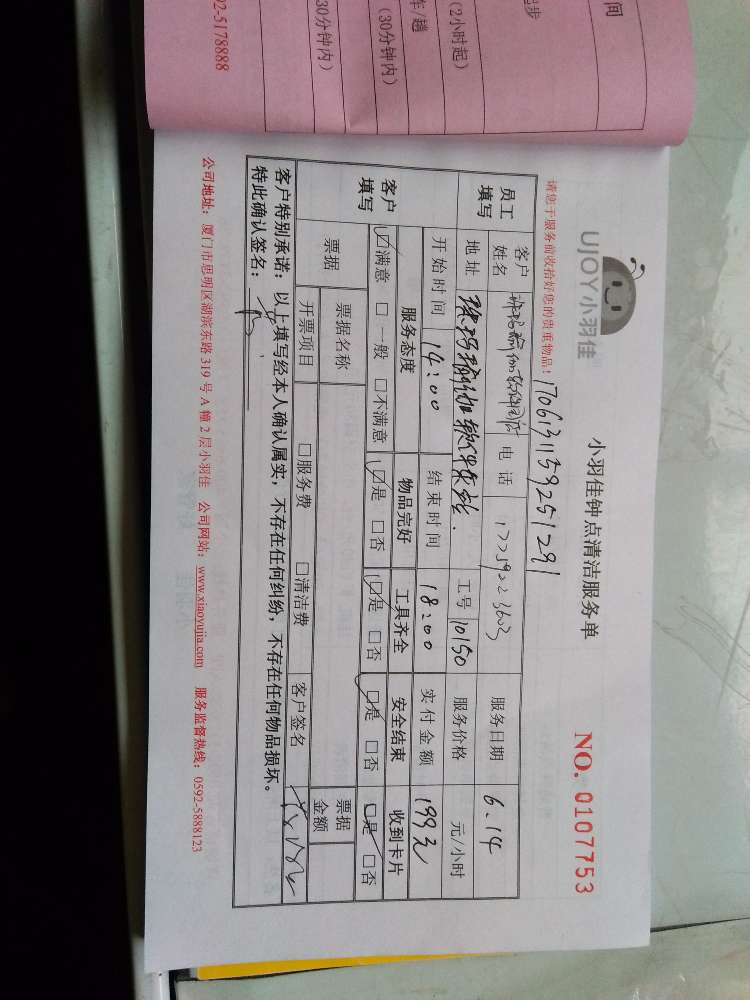 间
起步
(2小时起)
车/趟
(30分钟内)
30分钟内)
92-5178888
UJOY小羽佳
小羽佳钟点清洁服务单
NO. 0107753
请您于服务前收拾好您的贵重物品！
1706131159251291
员工填写
客户姓名
电话
服务日期 6.14
地址
工号 10150
服务价格
元/小时
客户填写
开始时间 14:00
结束时间 18:00
实付金额 199元
服务态度
物品完好
工具齐全
安全结束
收到卡片
☑满意 □一般 □不满意
☑是 □否
☑是 □否
☑是 □否
☑是 □否
票据
票据名称
票据金额
开票项目
□服务费 □清洁费
客户签名
客户特别承诺：以上填写经本人确认属实，不存在任何纠纷，不存在任何物品损坏。
特此确认签名：
公司地址：厦门市思明区湖滨东路319号A幢2层小羽佳 公司网站：www.xiaoyujia.com 服务监督热线：0592-5888123